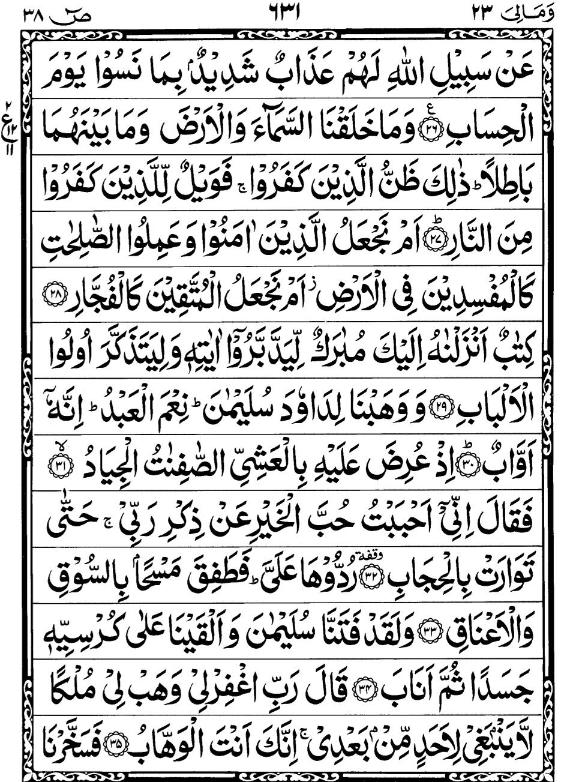 وَمَالِیَ ٢٣ ٦٣١ صٓ ٣٨
عَنْ سَبِیْلِ اللّٰهِ لَهُمْ عَذَابٌ شَدِیْدٌۢ بِمَا نَسُوْا یَوْمَ
الْحِسَابِ ۧ﴿٢٦﴾ وَمَا خَلَقْنَا السَّمَآءَ وَالْاَرْضَ وَمَا بَیْنَهُمَا
بَاطِلًا ؕ ذٰلِكَ ظَنُّ الَّذِیْنَ كَفَرُوْا ۚ فَوَیْلٌ لِّلَّذِیْنَ كَفَرُوْا
مِنَ النَّارِ ؕ﴿٢٧﴾ اَمْ نَجْعَلُ الَّذِیْنَ اٰمَنُوْا وَعَمِلُوا الصّٰلِحٰتِ
كَالْمُفْسِدِیْنَ فِی الْاَرْضِ ؗ اَمْ نَجْعَلُ الْمُتَّقِیْنَ كَالْفُجَّارِ ﴿٢٨﴾
كِتٰبٌ اَنْزَلْنٰهُ اِلَیْكَ مُبٰرَكٌ لِّیَدَّبَّرُوْۤا اٰیٰتِهٖ وَلِیَتَذَكَّرَ اُولُوا
الْاَلْبَابِ ﴿٢٩﴾ وَوَهَبْنَا لِدَاوٗدَ سُلَیْمٰنَ ؕ نِعْمَ الْعَبْدُ ؕ اِنَّهٗۤ
اَوَّابٌ ؕ﴿٣٠﴾ اِذْ عُرِضَ عَلَیْهِ بِالْعَشِیِّ الصّٰفِنٰتُ الْجِیَادُ ۙ﴿٣١﴾
فَقَالَ اِنِّیْۤ اَحْبَبْتُ حُبَّ الْخَیْرِ عَنْ ذِكْرِ رَبِّیْ ۚ حَتّٰی
تَوَارَتْ بِالْحِجَابِ ﴿٣٢﴾ وقفة رُدُّوْهَا عَلَیَّ ؕ فَطَفِقَ مَسْحًۢا بِالسُّوْقِ
وَالْاَعْنَاقِ ﴿٣٣﴾ وَلَقَدْ فَتَنَّا سُلَیْمٰنَ وَاَلْقَیْنَا عَلٰی كُرْسِیِّهٖ
جَسَدًا ثُمَّ اَنَابَ ﴿٣٤﴾ قَالَ رَبِّ اغْفِرْ لِیْ وَهَبْ لِیْ مُلْكًا
لَّا یَنْۢبَغِیْ لِاَحَدٍ مِّنْۢ بَعْدِیْ ۚ اِنَّكَ اَنْتَ الْوَهَّابُ ﴿٣٥﴾ فَسَخَّرْنَا
٢
ع ١٢
١١